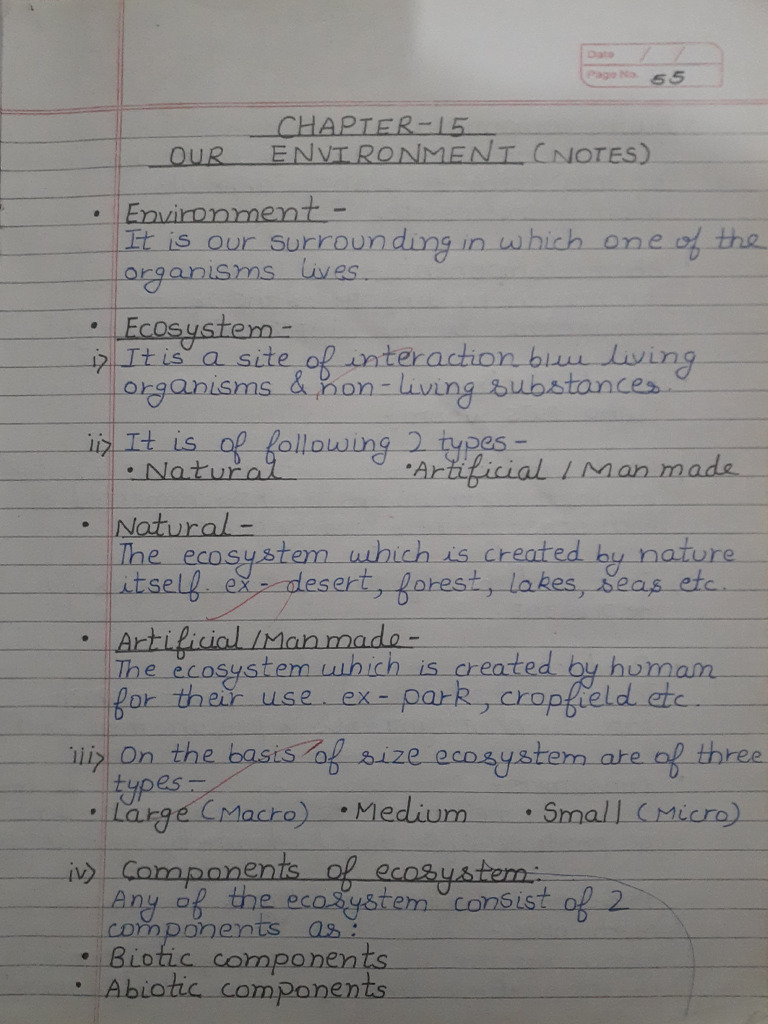 Date / /
Page No. 55
CHAPTER-15
OUR ENVIRONMENT (NOTES)
• Environment -
It is our surrounding in which one of the
organisms lives.
• Ecosystem -
i) It is a site of interaction b/w living
organisms & non-living substances.
ii) It is of following 2 types -
• Natural • Artificial / Man made
• Natural -
The ecosystem which is created by nature
itself. ex - desert, forest, lakes, seas etc.
• Artificial / Man made -
The ecosystem which is created by human
for their use. ex - park, cropfield etc.
iii) On the basis of size ecosystem are of three
types -
• Large (Macro) • Medium • Small (Micro)
iv) Components of ecosystem:
Any of the ecosystem consist of 2
components as:
• Biotic components
• Abiotic components